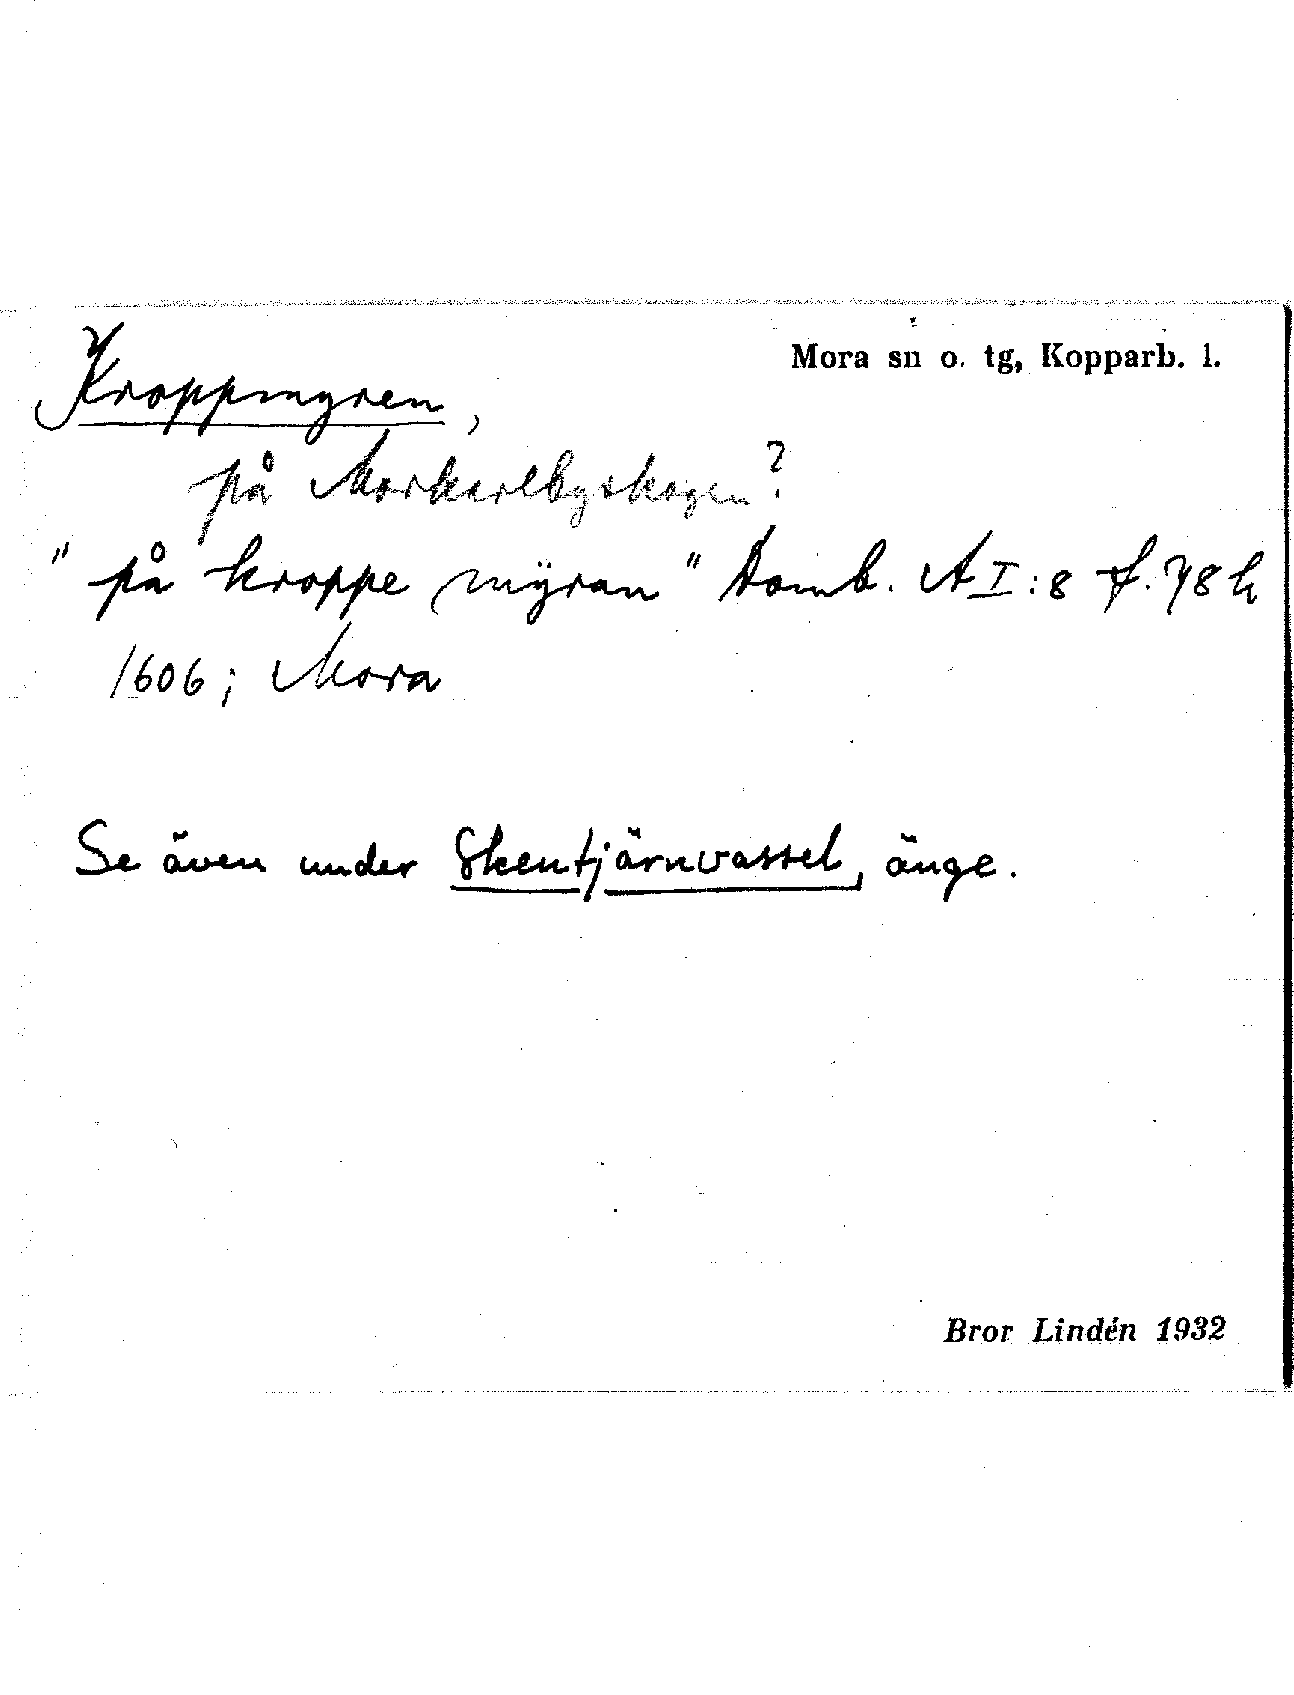 Mora sn o. tg, Kopparb. l.
Kroppmyren,
på Morkarlbyskogen?
"på kroppe mÿran" Domb. A I:8 f. 78 h
1606; Mora
Se även under Skentjärnvassel, änge.
Bror Lindén 1932